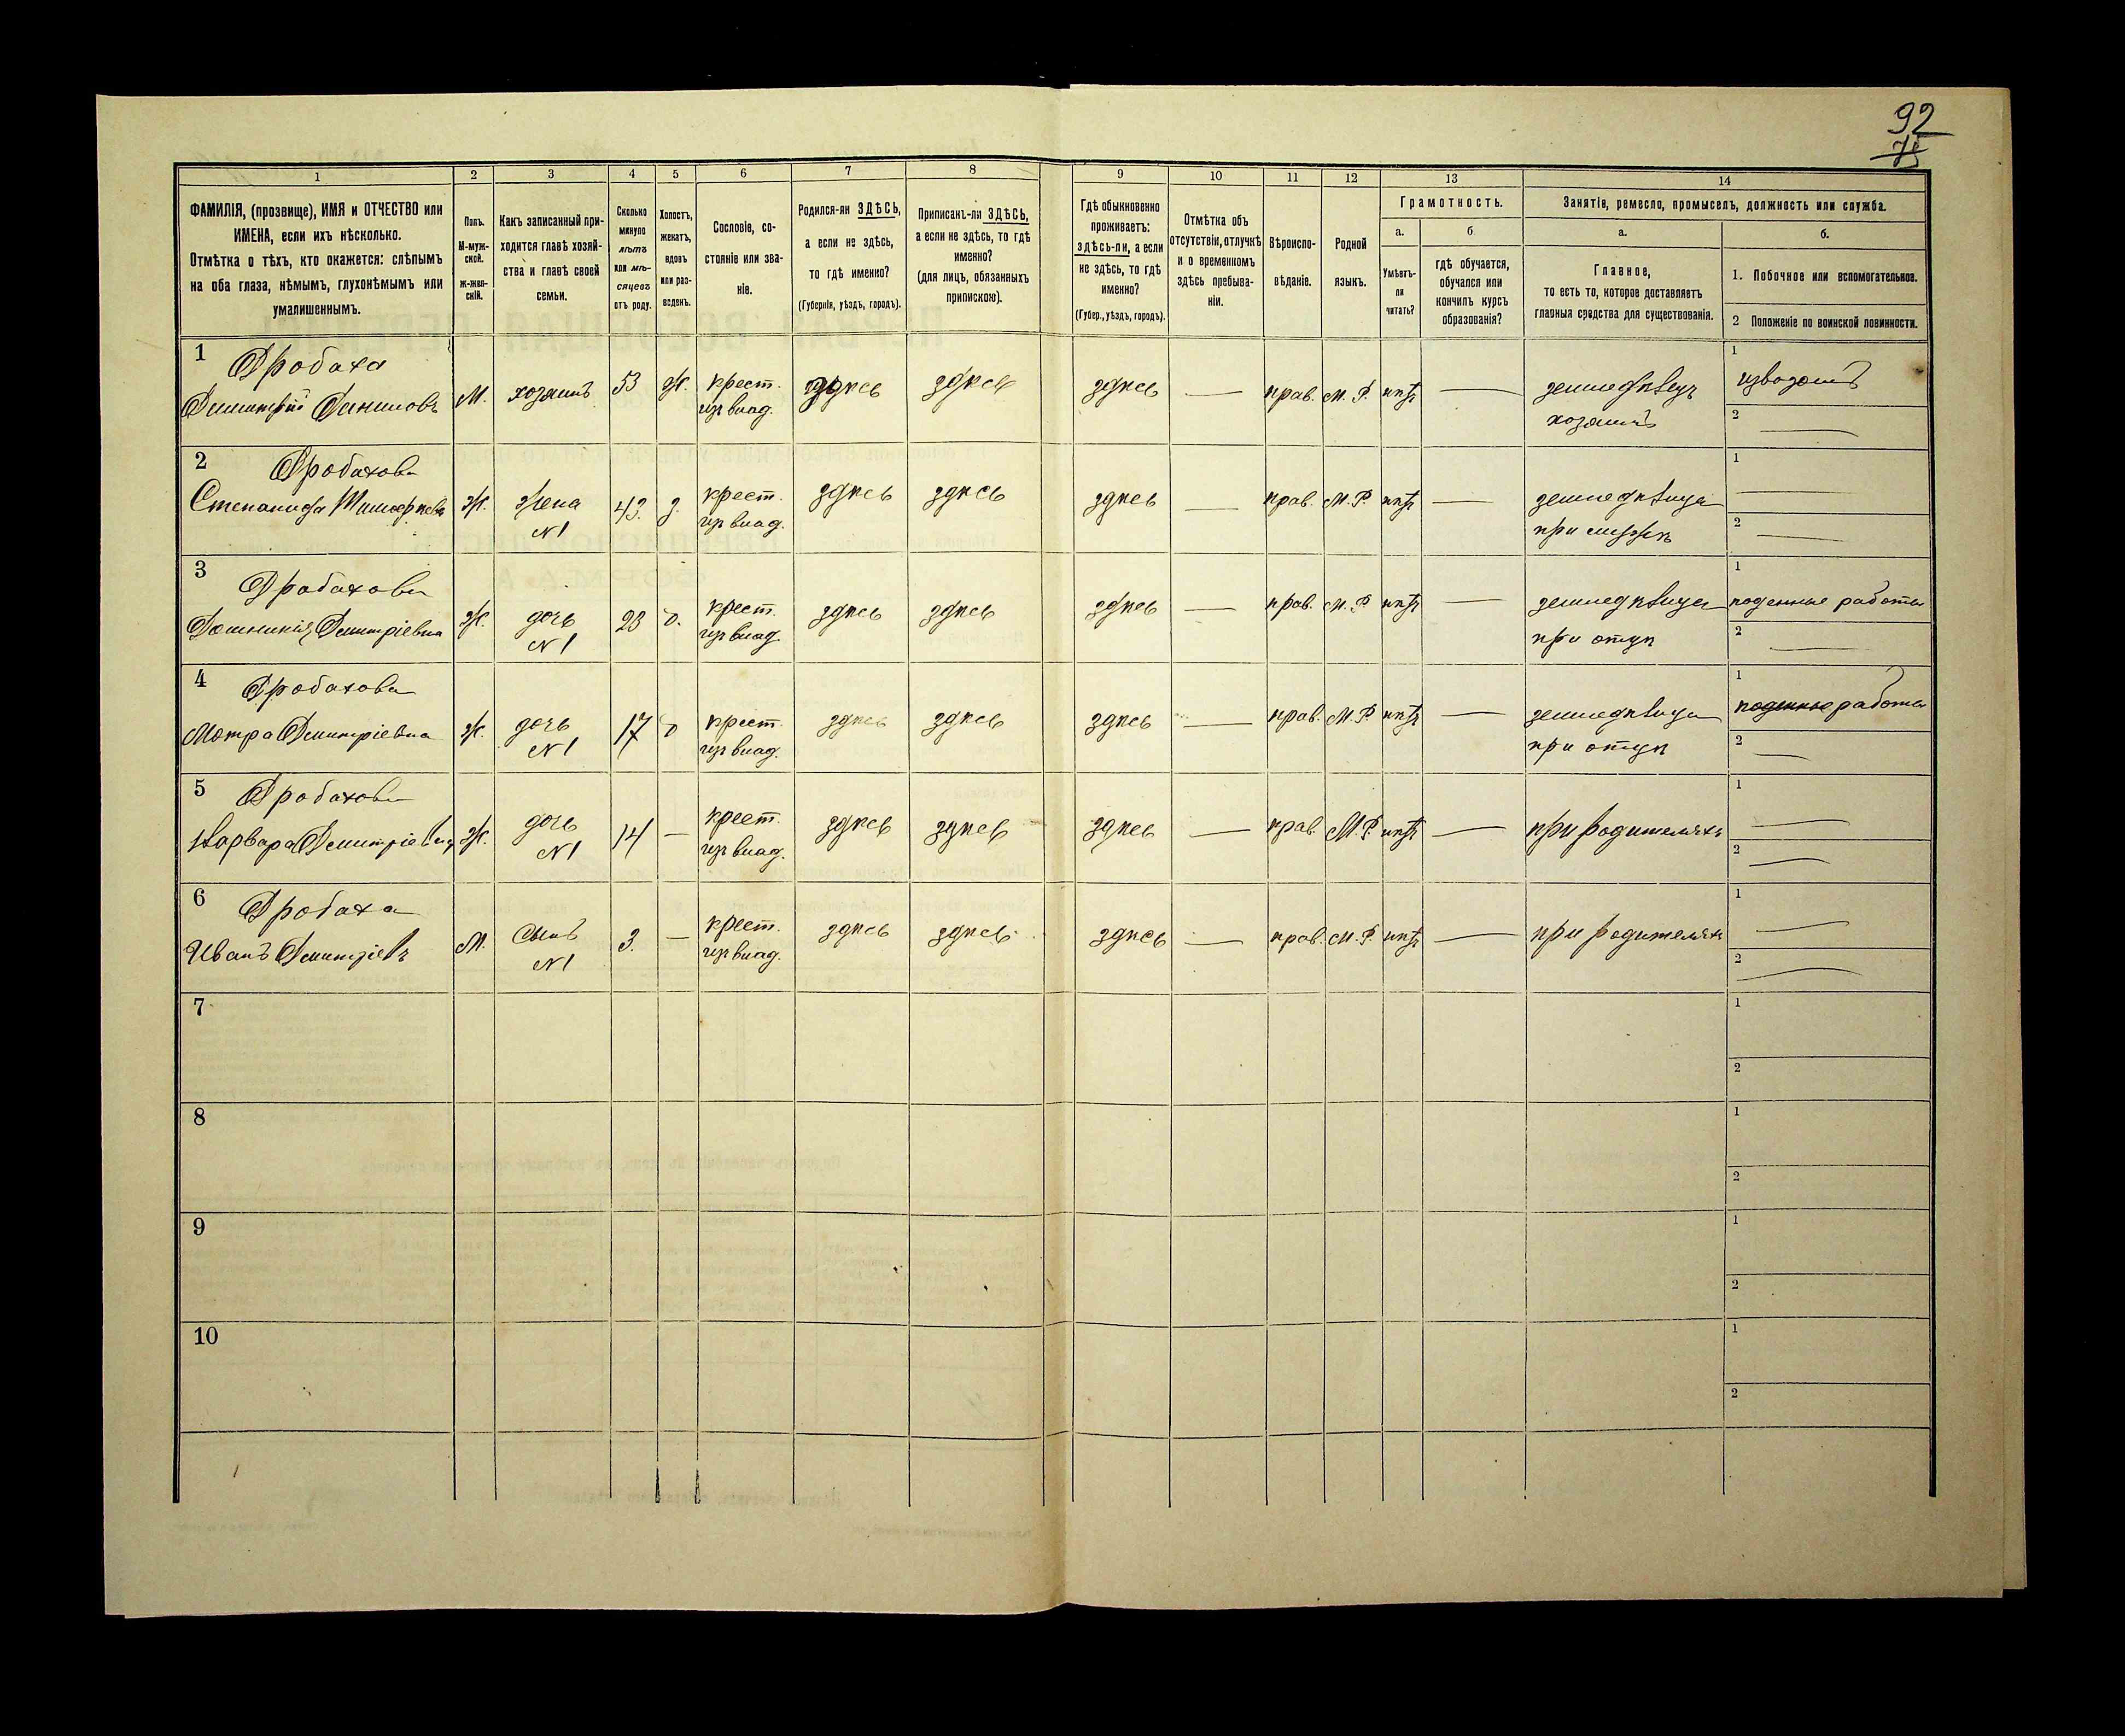 92
75
1 2 3 4 5 6 7 8 9 10 11 12 13 14
ФАМИЛІЯ, (прозвище), ИМЯ и ОТЧЕСТВО или
ИМЕНА, если ихъ нѣсколько.
Отмѣтка о тѣхъ, кто окажется: слѣпымъ
на оба глаза, нѣмымъ, глухонѣмымъ или
умалишеннымъ.
Полъ.
М-муж-
ской.
Ж-жен-
скій.
Какъ записанный при-
ходится главѣ хозяй-
ства и главѣ своей
семьи.
Сколько
минуло
лѣтъ
или мѣ-
сяцевъ
отъ роду.
Холостъ,
женатъ,
вдовъ
или раз-
веденъ.
Сословіе, со-
стояніе или зва-
ніе.
Родился-ли ЗДѢСЬ,
а если не здѣсь,
то гдѣ именно?
(Губернія, уѣздъ, городъ).
Приписанъ-ли ЗДѢСЬ,
а если не здѣсь, то гдѣ
именно?
(для лицъ, обязанныхъ
припискою).
Гдѣ обыкновенно
проживаетъ:
здѣсь-ли, а если
не здѣсь, то гдѣ
именно?
(Губер., уѣздъ, городъ).
Отмѣтка объ
отсутствіи, отлучкѣ
и о временномъ
здѣсь пребыва-
ніи.
Вѣроиспо-
вѣданіе.
Родной
языкъ.
Грамотность.
а.
Умѣетъ-
ли
читать?
б
гдѣ обучается,
обучался или
кончилъ курсъ
образованія?
Занятіе, ремесло, промыселъ, должность или служба.
а.
Главное,
то есть то, которое доставляетъ
главныя средства для существованія.
б.
1. Побочное или вспомогательное.
2 Положеніе по воинской повинности.
1 Дробаха
Димитрій Даниловъ М. хозяинъ 53 ж. крест. здѣсь здѣсь здѣсь — прав. М. Р. нѣтъ — земледѣлецъ 1 извозомъ
изъ влад. хозяинъ 2 —
2 Дробахова
Степанида жена 43. з. крест. здѣсь здѣсь здѣсь — прав. М. Р. нѣтъ — земледѣлица 1 —
Ж. N1 изъ влад. при мужѣ 2 —
3 Дробахова
Домникія Димитріевна Ж. дочь 23 д. крест. здѣсь здѣсь здѣсь — прав. М. Р. нѣтъ — земледѣлица 1 поденные работы
N1 изъ влад. при отцѣ 2 —
4 Дробахова
Мотра Димитріевна Ж. дочь 17 д крест. здѣсь здѣсь здѣсь — прав. М. Р. нѣтъ — земледѣлица 1 поденные работы
N1 изъ влад. при отцѣ 2 —
5 Дробахова
Варвара Димитріевна Ж. дочь 14 — крест. здѣсь здѣсь здѣсь — прав. М. Р. нѣтъ — при родителяхъ 1 —
N1 изъ влад. 2 —
6 Дробаха
Иванъ Димитріевъ М. сынъ 3. — крест. здѣсь здѣсь здѣсь — прав. М. Р. нѣтъ — при родителяхъ 1 —
N1 изъ влад. 2 —
7 1
2
8 1
2
9 1
2
10 1
2